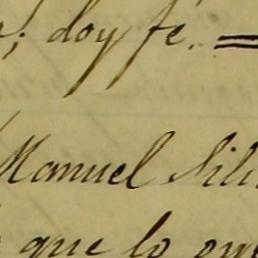 ; doy fe.
Manuel
que lo